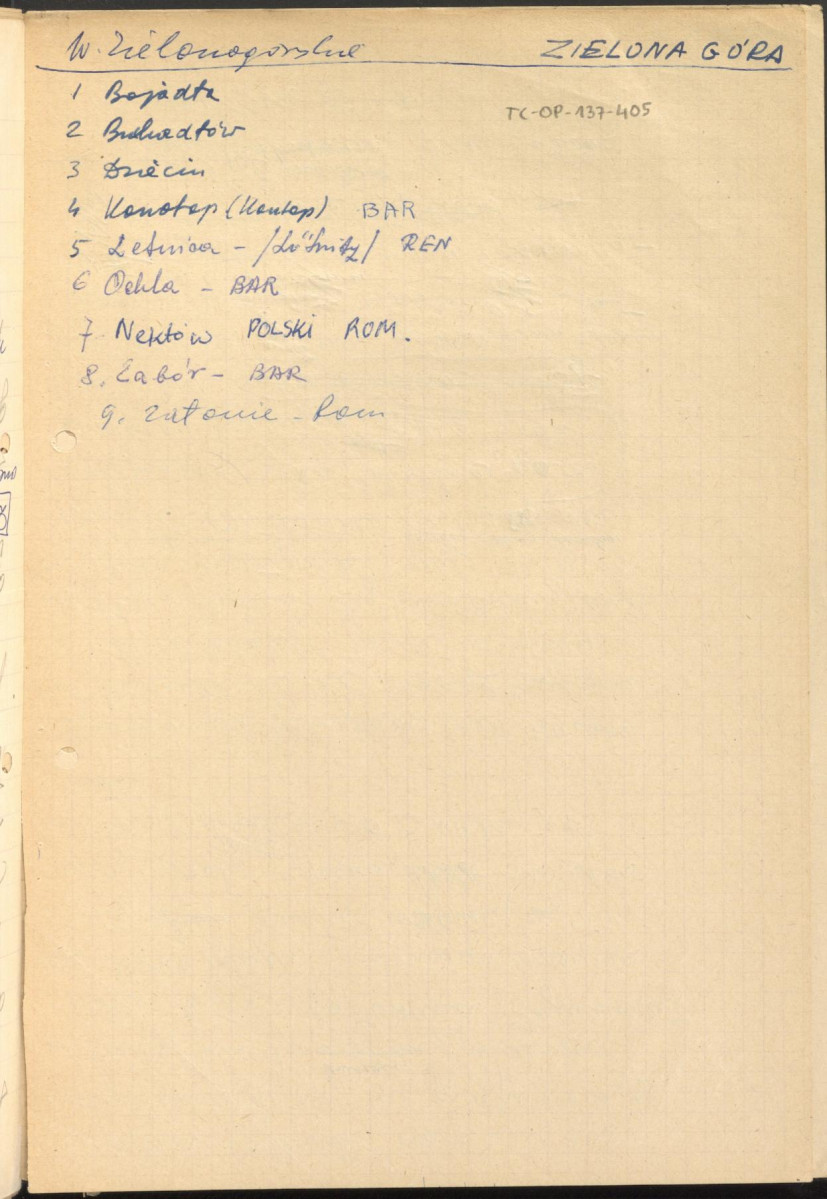 W. Zielonogórskie ZIELONA GÓRA
TC-OP-137-405
1 Bojadła
2 Buchałów
3 Drzecin
4 Konotop (Kontop) BAR
5 Letnica - /Lättnitz/ REN
6 Ochla - BAR
7 Nektów POLSKI ROM.
8. Zabór - BAR
9. Zatonie - Rom